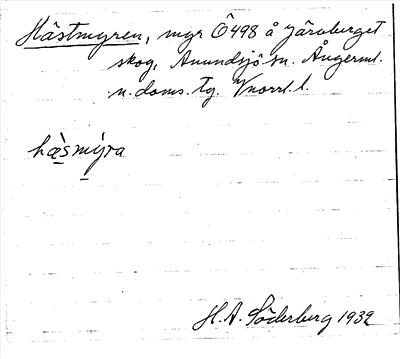 Hästmyren, myr Ö498 å Järvberget
skog, Anundsjö sn. Ångerml.
n. doms. tg. Vnorrl. l.
hæ̀smýra
H. A. Söderberg 1932